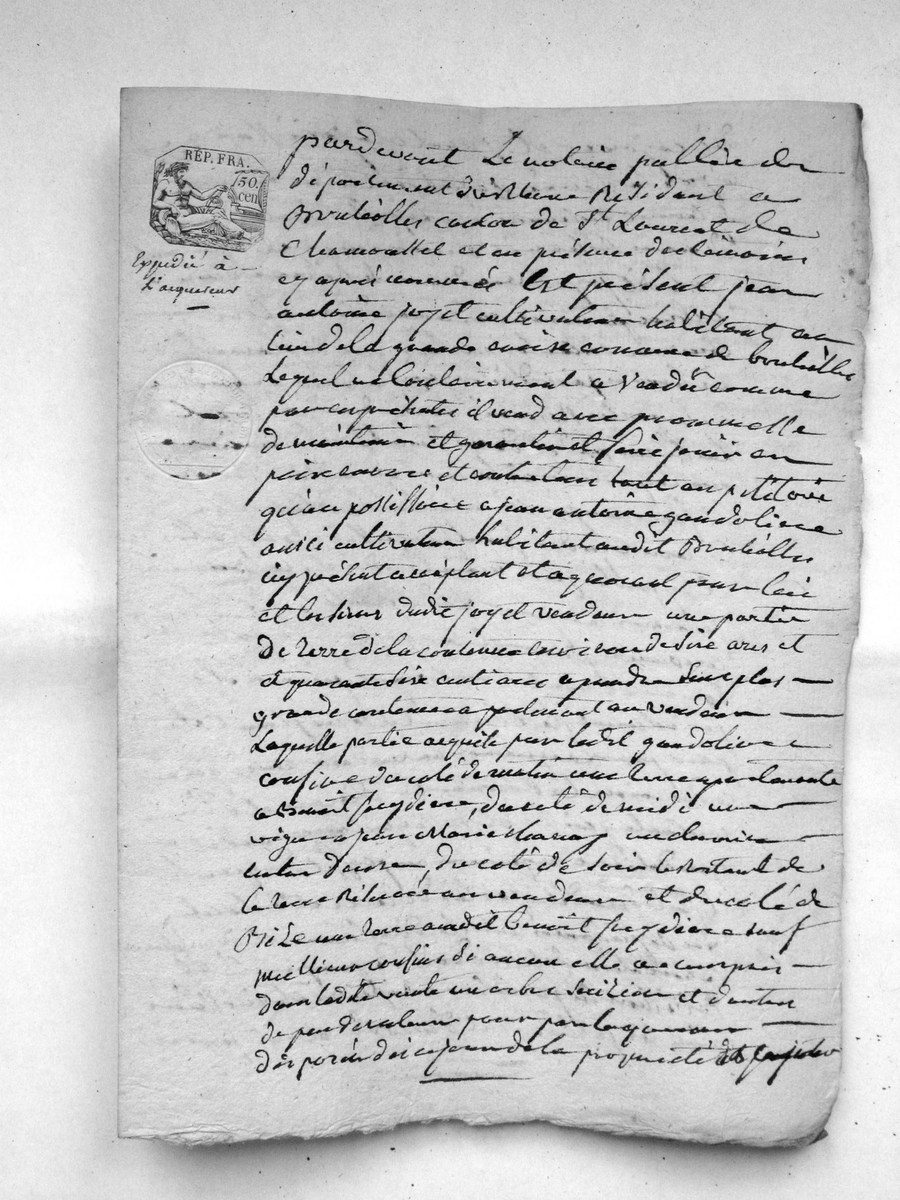 REP. FRA.
50 cen
Expedié à
l'acquereur
pardevant Le notaire public du
département Résidant a
Brulliolles canton de St Laurent de
Chamousset et en présence des témoins
cy après nommés Est présent jean
antoine joyet cultivateur habitant au
lieu de la grande croix commune de brulliolles
Lequel volontairement a Vendu comme
par ces présentes il vend avec promesse
de maintenir et garantir et faire jouir en
paix envers et contre tous tant au pétitoire
qu'au possessoire a jean antoine gandolière
aussi cultivateur habitant audit Brulliolles
icy présent acceptant et acquerant pour lui
et les siens dudit joyet vendeur une partie
de terre de la contenue environ de seize ares et
et quarante six centiares a prendre sur plus
grande contenue appartenant au vendeur
Laquelle partie acquise par ledit gandolière
confine du coté de matin une terre appartenante
a Benoit freydiere, du coté de midi une
vigne a jean Marie un chemin
entre deux, du coté de soir le restant de
la terre Réservée au vendeur et du coté de
Bize une terre audit benoît freydiere sauf
meilleurs confins si aucun elle a compris
dans ladite vente un arbre et d'autres
de peu de valeur pour par le
disposer dès ce jour de la propriété